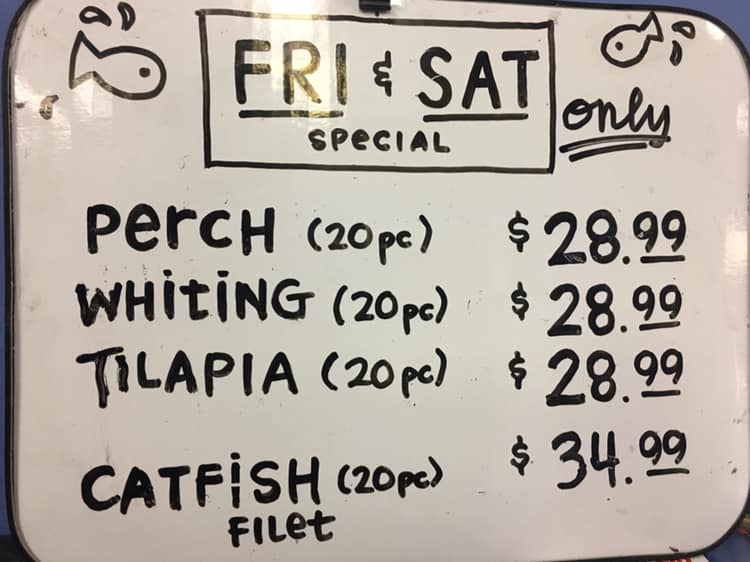 FRI & SAT
SPECIAL
only
PerCH (20pc) $28.99
WHitiNG (20pc) $28.99
TILAPIA (20pc) $28.99
CATFiSH (20pc) $34.99
FILet